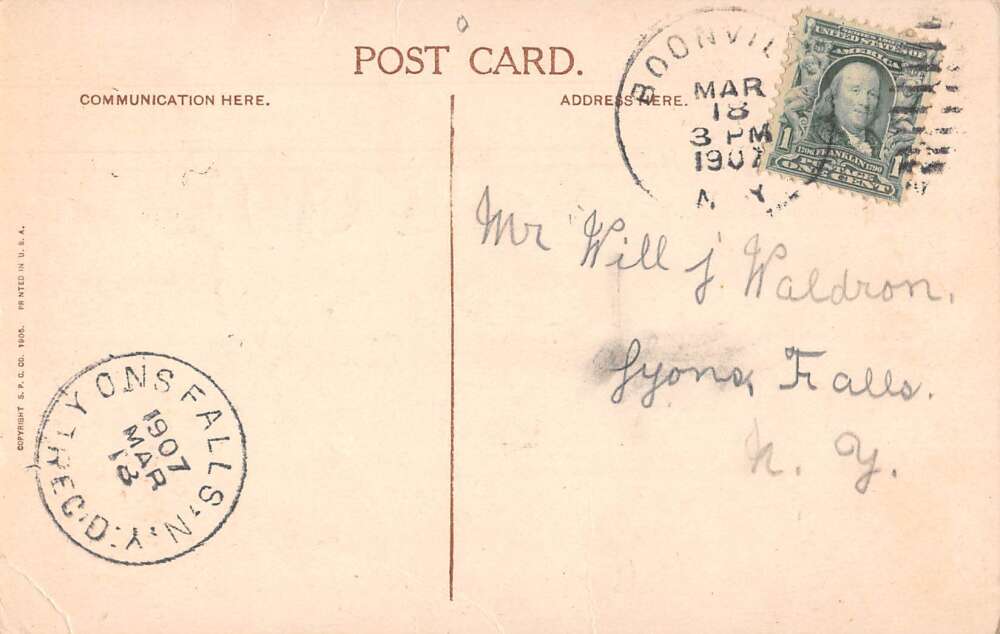 POST CARD.
COMMUNICATION HERE.
ADDRESS HERE.
BOONVIL
MAR
18
3 PM
1907
N Y
SERIES 1902
UNITED STATES OF
AMERICA
1706 FRANKLIN 1790
POSTAGE
1 ONE CENT 1
Mr Will J Waldron.
Lyons Falls.
N. Y.
COPYRIGHT S. P. C. CO. 1905. PRINTED IN U. S. A.
LYONS FALLS, N.Y. REC'D.
1907
MAR
18